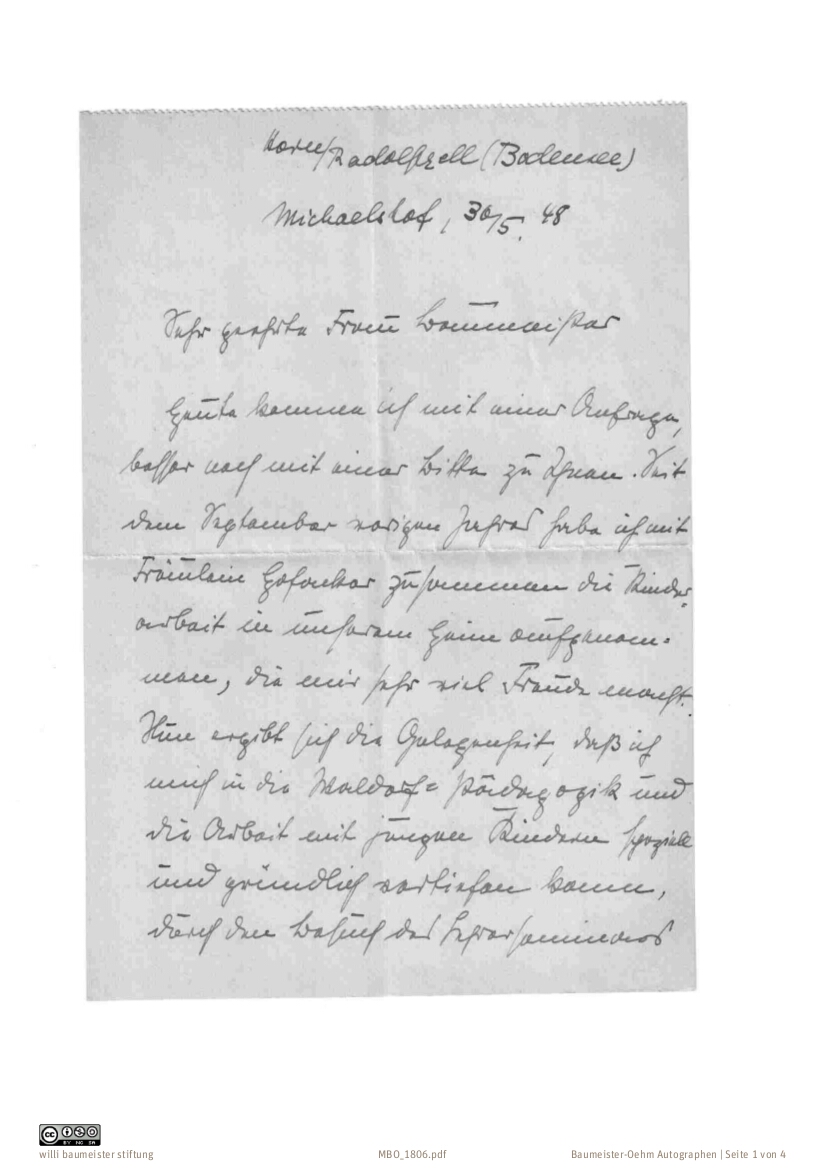 Horn/Radolfzell (Bodensee)
Michaelshof, 30/5. 48
Sehr geehrte Frau Baummeister
Heute komme ich mit einer Anfrage,
besser noch mit einer Bitte zu Ihnen. Seit
dem September vorigen Jahres habe ich mit
Fräulein zusammen die Kinder-
arbeit in unserem Heim aufgenom-
men, die mir sehr viel Freude macht.
Nun ergibt sich die Gelegenheit, daß ich
mich in die Waldorf-Pädagogik und
die Arbeit mit jungen Kindern speziell
und gründlich vertiefen kann,
durch den Besuch des Lehrerseminars
BY NC SA
willi baumeister stiftung
MBO_1806.pdf
Baumeister-Oehm Autographen | Seite 1 von 4